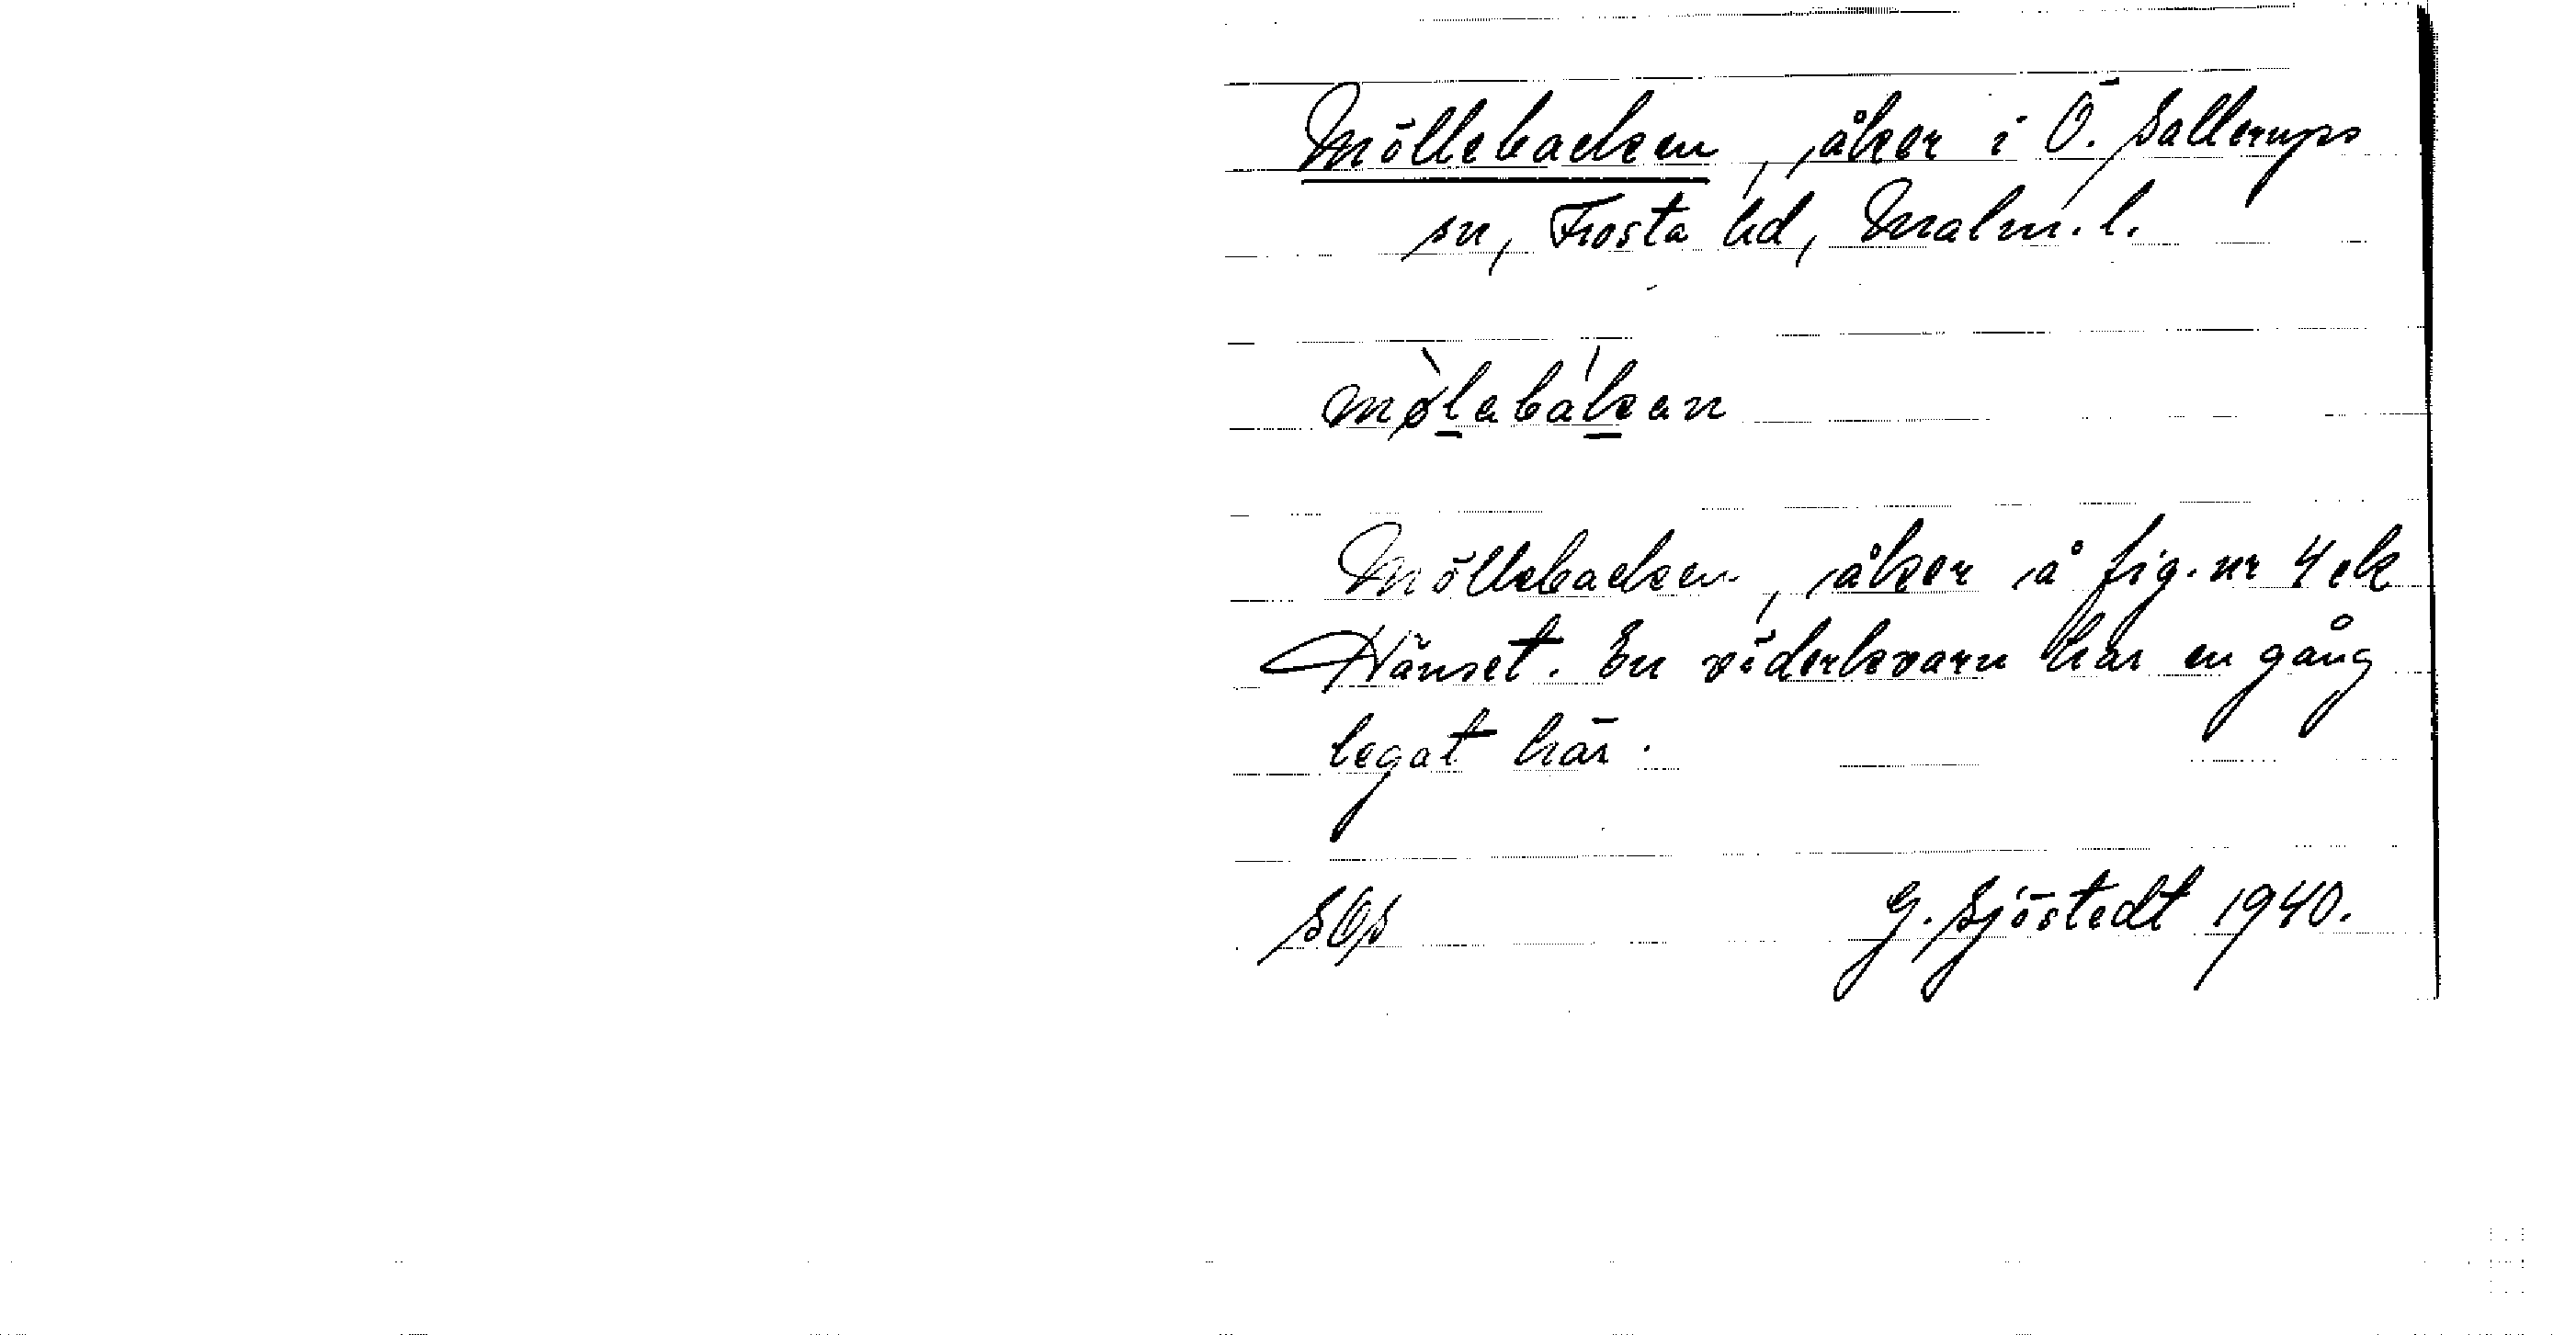 Möllebacken, åker i Ö. Sallerups
sn, Frosta hd, Malm. l.
mø̀lebákan
Möllebacken, åker å fig. nr 4 ek
Hänset. En väderkvarn har en gång
legat här.
SOS G. Sjöstedt 1940.